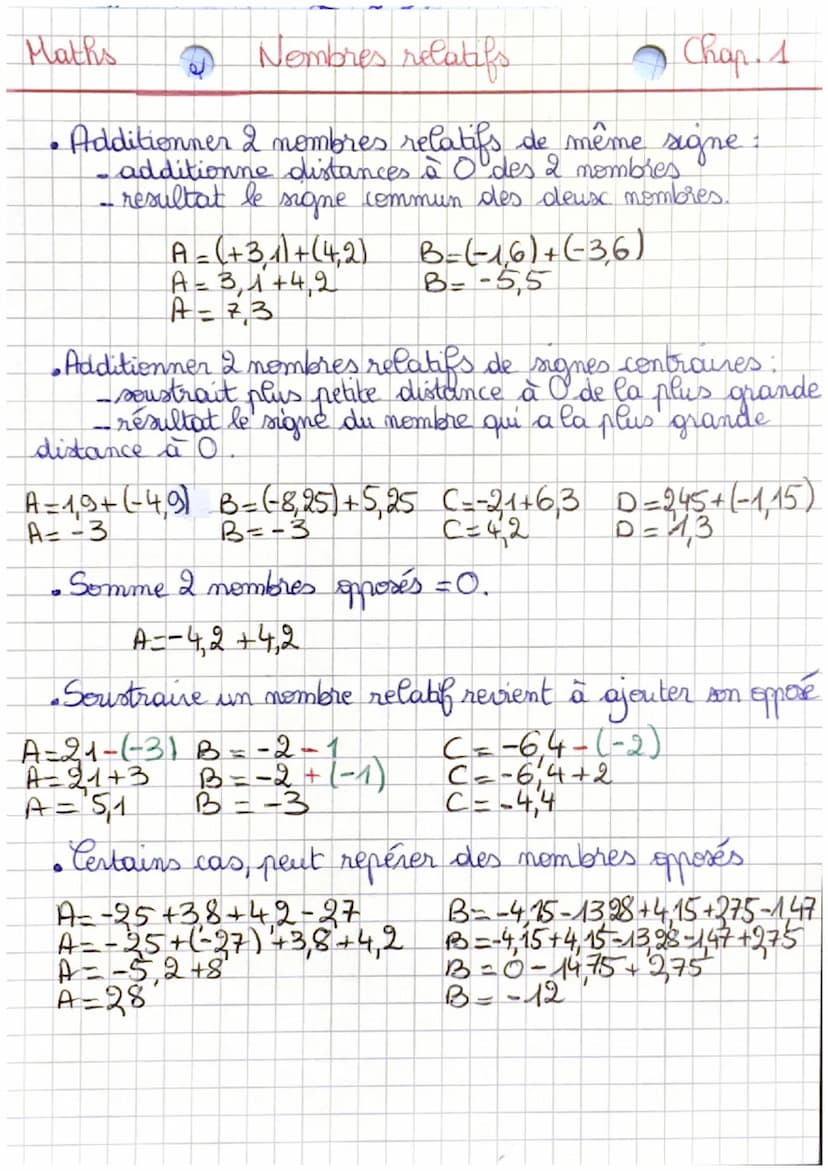 Maths 2) Nombres relatifs Chap. 1
• Additionner 2 nombres relatifs de même signe :
- additionne distances à 0 des 2 nombres
- resultat le signe commun des deux nombres.
A = (+3,1)+(4,2) B=(-1,6)+(-3,6)
A = 3,1+4,2 B= -5,5
A = 7,3
• Additionner 2 nombres relatifs de signes contraires :
- soustrait plus petite distance à 0 de la plus grande
- résultat le signe du nombre qui a la plus grande
distance à 0.
A=1,9+(-4,9) B=(-8,25)+5,25 C=-2,1+6,3 D=2,45+(-1,15)
A= -3 B= -3 C=4,2 D= 1,3
• Somme 2 nombres opposés =0.
A=-4,2 +4,2
• Soustraire un nombre relatif revient à ajouter son opposé
A=2,1-(-3) B = -2-1 C= -6,4-(-2)
A=2,1+3 B= -2 +(-1) C=-6,4+2
A= 5,1 B = -3 C= -4,4
• Certains cas, peut repérer des nombres opposés
A= -2,5 +3,8+4,2 -2,7 B= -4,15-13,28+4,15+2,75-1,47
A= -2,5+(-2,7) +3,8+4,2 B=-4,15+4,15-13,28-1,47+2,75
A= -5,2 +8 B=0-14,75+2,75
A=2,8 B= -12